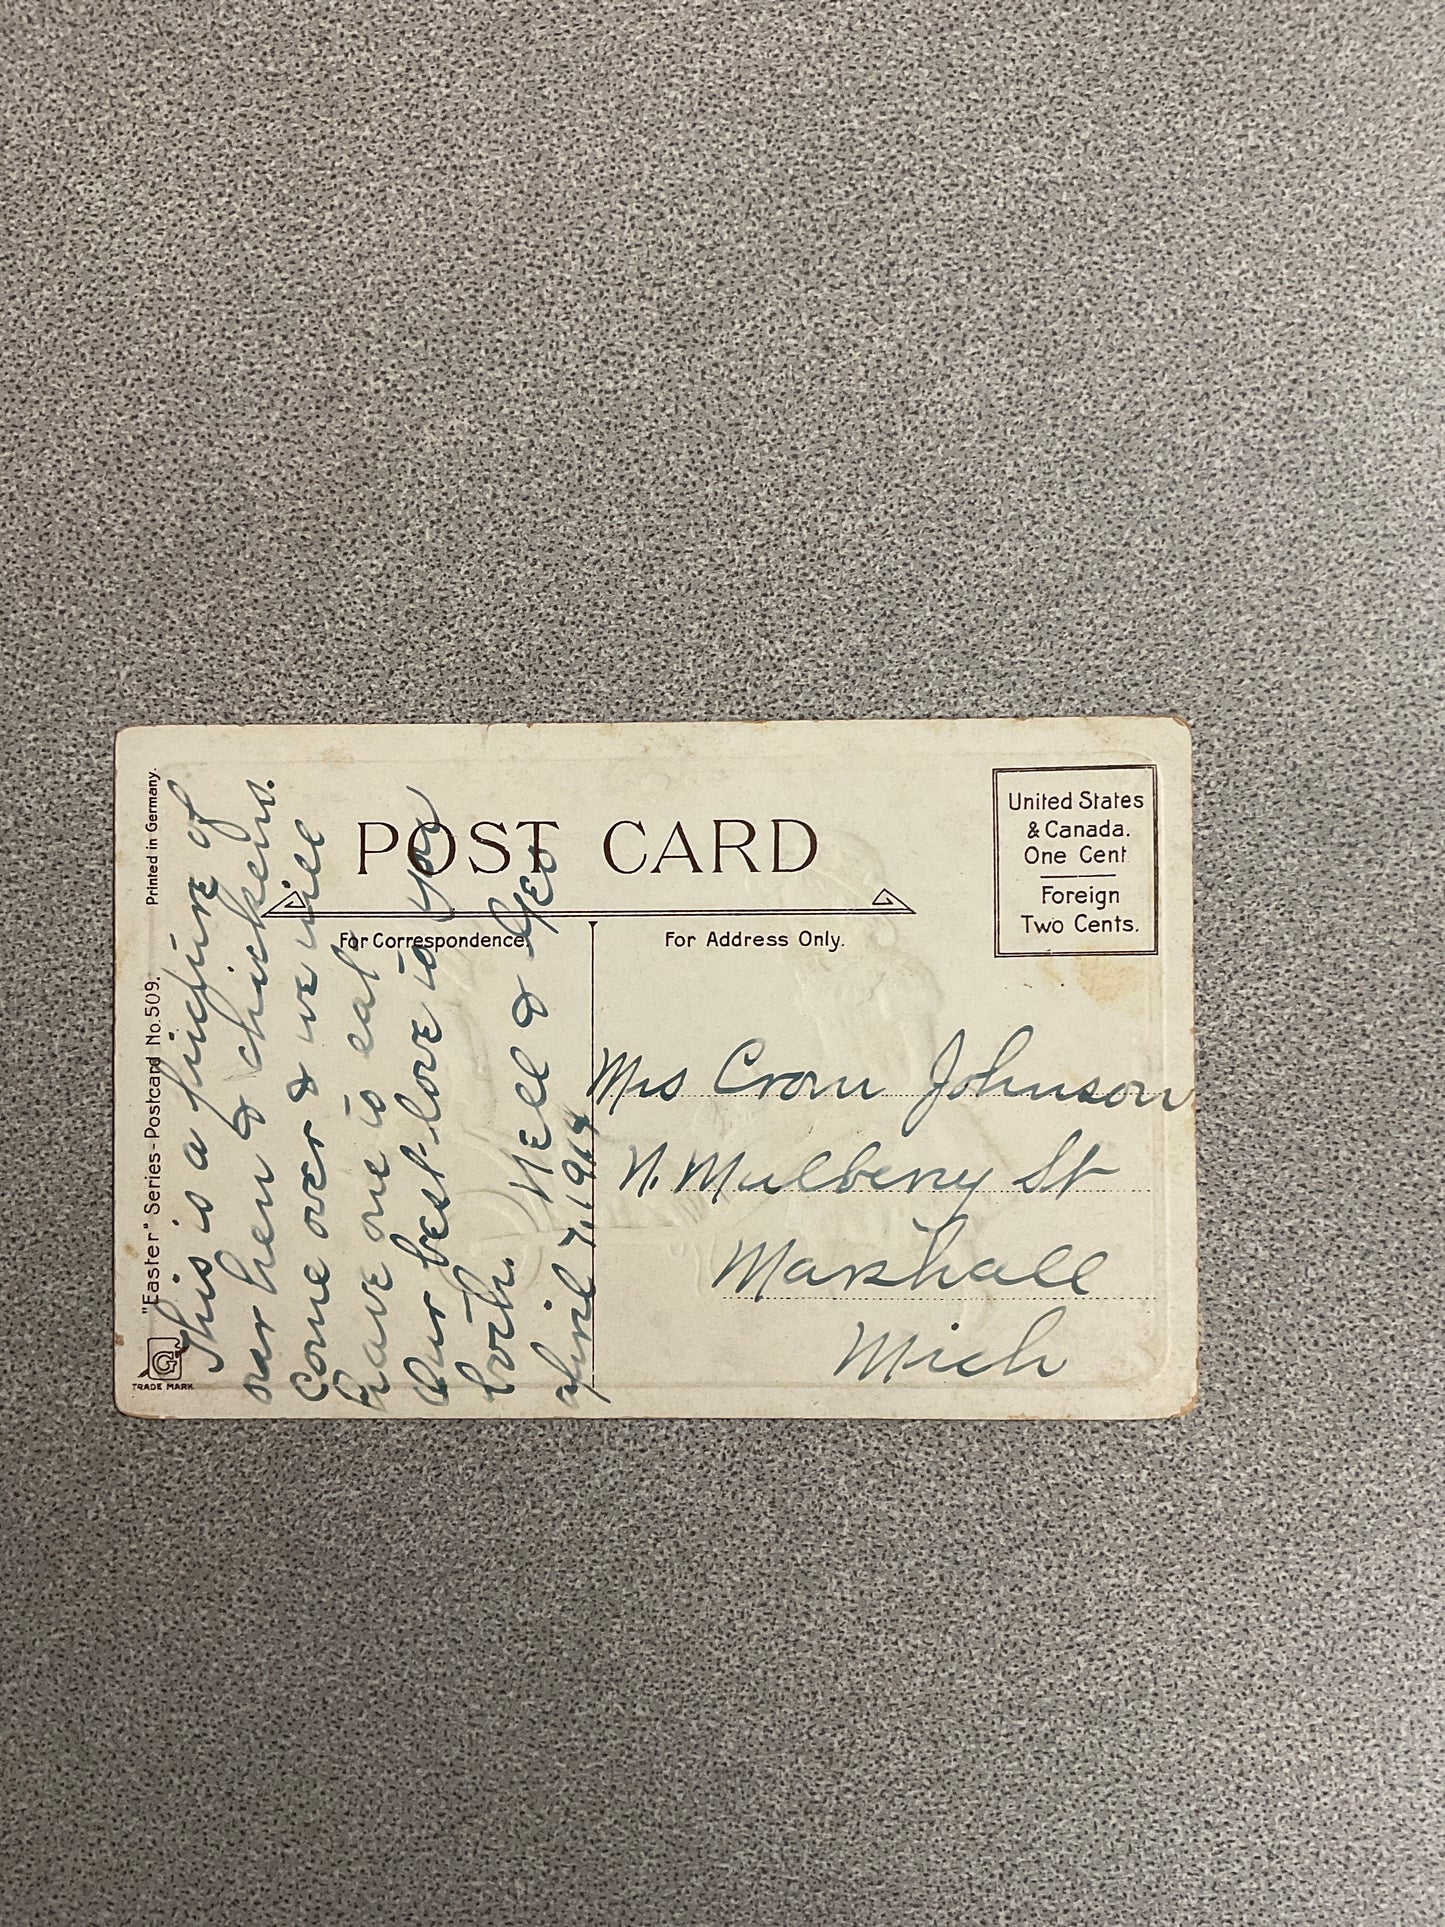 Printed in Germany.
"Easter" Series - Postcard No. 509.
TRADE MARK
POST CARD
For Correspondence.
For Address Only.
United States
& Canada.
One Cent
Foreign
Two Cents.
This is a picture of
our hen & chickens.
Come over & we will
have one to eat
Our best love to you
both. Nell & Geo
April 7, 1914
Mrs Crom Johnson
N. Mulberry St
Marshall
Mich